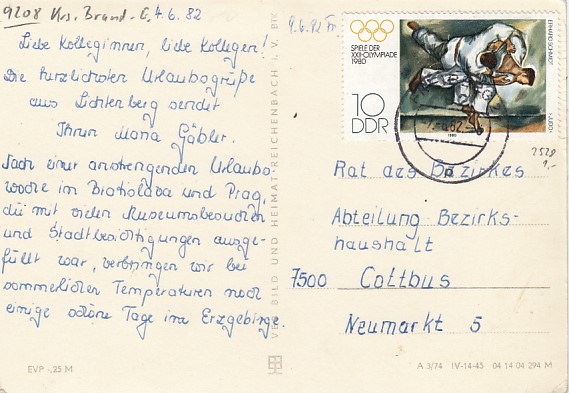 9208 Krs. Brand-E.
4.6.82
9.6.82
Liebe Kolleginnen, liebe Kollegen!
Die herzlichsten Urlaubsgrüße
aus Lichtenberg sendet
Ihnen Maria Gäbler.
Nach einer anstrengenden Urlaubs-
woche in Bratislava und Prag,
die mit vielen Museumsbesuchen
und Stadtbesichtigungen ausge-
füllt war, verbringen wir bei
sommerlichen Temperaturen noch
einige schöne Tage im Erzgebirge.
EVP -,25 M
VERLAG BILD UND HEIMAT REICHENBACH i. V.
SPIELE DER
XXII. OLYMPIADE
1980
10
DDR
ERHARD SCHMIDT
JUDO
1980
2528
1,-
Rat des Bezirkes
Abteilung Bezirks-
haushalt
7500 Cottbus
Neumarkt 5
A 3/74 IV-14-45 04 14 04 294 M